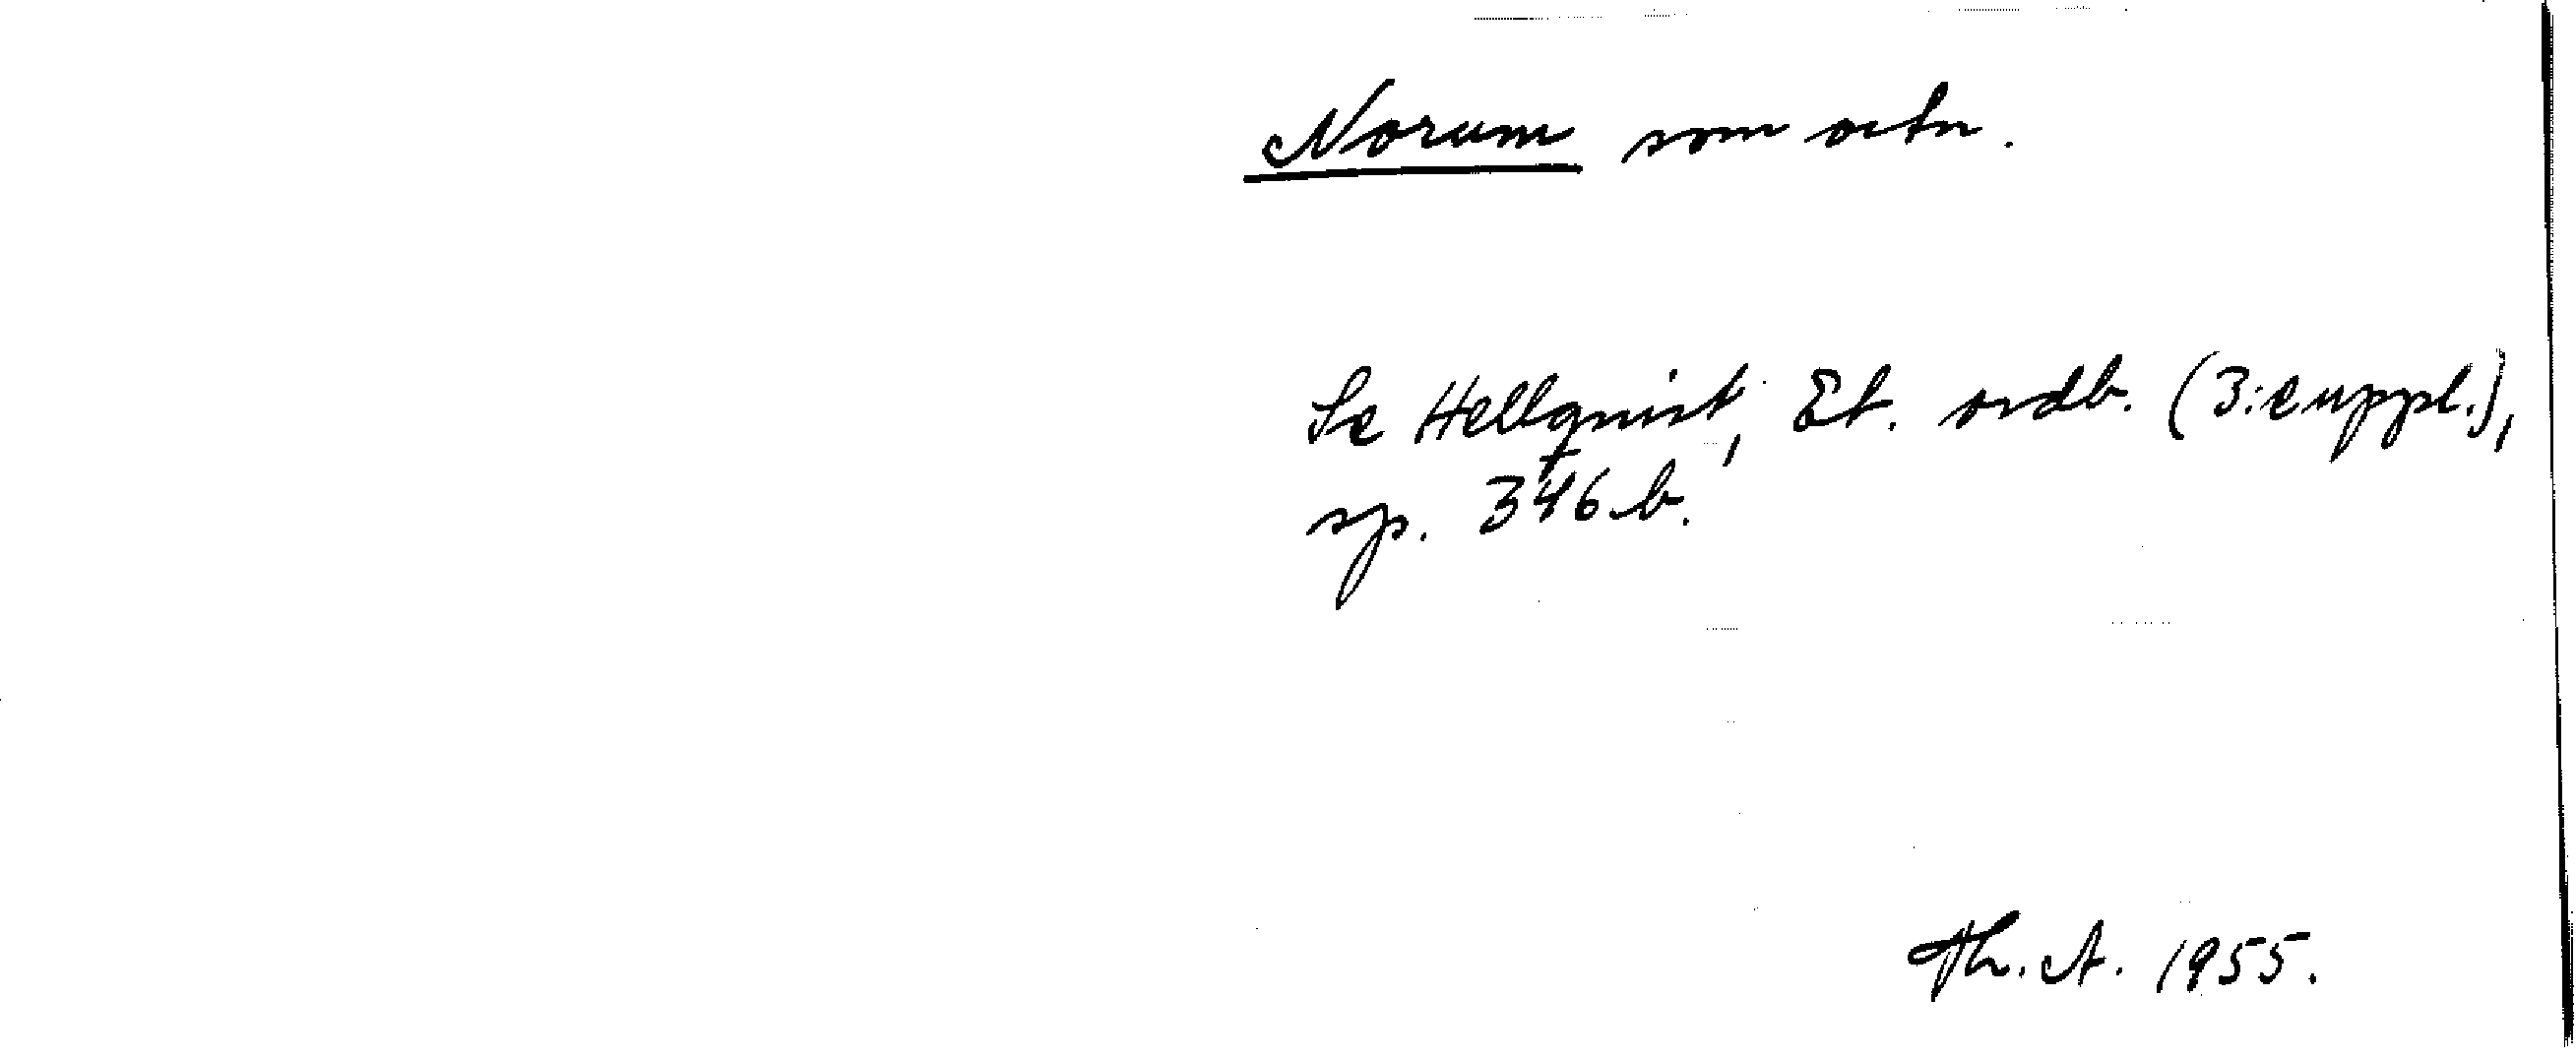 Norum som ortn.
Se Hellquist, Et. ordb. (3:e uppl.),
sp. 346 b.
Th. A. 1955.